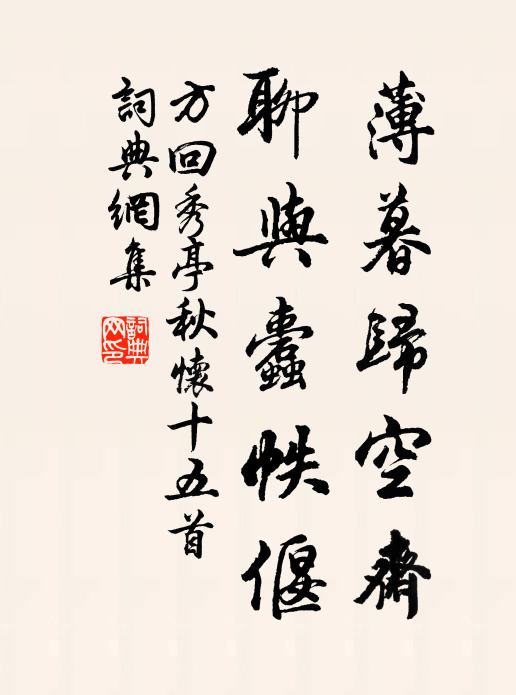 薄暮歸空齋
聊與蠹帙偃
方回秀亭秋懷十五首
詞典網集
詞典網印